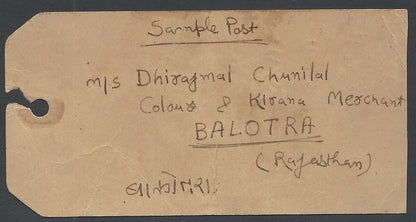 Sample Post
M/s Dhirajmal Chunilal
Colours & Kirana Merchant
BALOTRA
(Rajasthan)
બાલોતરા